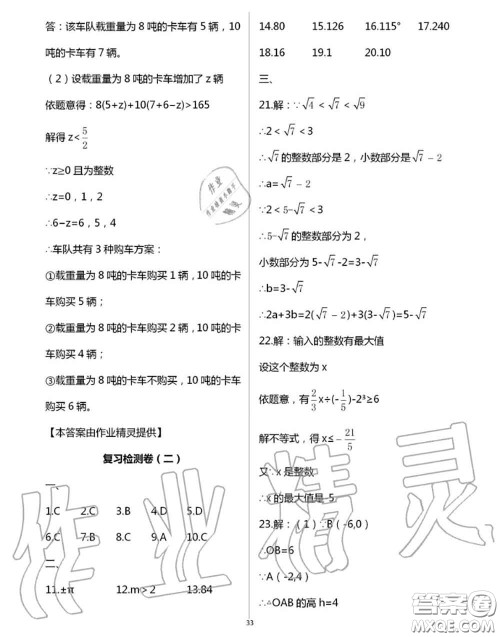 答：该车队载重量为 8 吨的卡车有 5 辆，10
吨的卡车有 7 辆。
（2）设载重量为 8 吨的卡车增加了 z 辆
依题意得：8(5+z)+10(7+6−z)>165
解得 z<5/2
∵z≥0 且为整数
∴z=0，1，2
∴6−z=6，5，4
∴车队共有 3 种购车方案：
①载重量为 8 吨的卡车购买 1 辆，10 吨的卡
车购买 5 辆；
②载重量为 8 吨的卡车购买 2 辆，10 吨的卡
车购买 4 辆；
③载重量为 8 吨的卡车不购买，10 吨的卡车
购买 6 辆。
【本答案由作业精灵提供】
复习检测卷（二）
一、
1.C 2.C 3.B 4.D 5.D
6.C 7.B 8.C 9.A 10.C
二、
11.±π 12.m＞2 13.84
14.80 15.126 16.115° 17.240
18.16 19.1 20.10
三、
21.解：∵√4 < √7 < √9
∴2 < √7 < 3
∴√7 的整数部分是 2，小数部分是√7 − 2
∴a=√7 − 2
∵2<5-√7 < 3
∴5-√7 的整数部分为 2，
小数部分为 5-√7 -2=3-√7
∴b=3-√7
∴2a+3b=2(√7 − 2)+3(3-√7)=5-√7
22.解：输入的整数有最大值
设这个整数为 x
依题意，有 2/3 x÷(-1/5)-2³≥6
解不等式，得 x≤ − 21/5
又∵x 是整数
∴x 的最大值是-5
23.解：（1）∵B（-6,0）
∴OB=6
∵A（-2,4）
∴△OAB 的高 h=4
33
作业精灵
答案圈